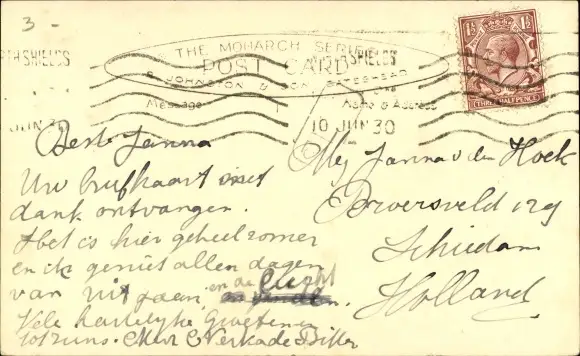 3-
TH SHIELDS
THE MONARCH SERIES
POST CARD
JOHNSTON & SON, GATESHEAD
Message
Name & Address
SHIELDS
JUN 30
10 JUN 30
THREE HALFPENCE
1½ 1½
Beste Janna
Uw briefkaart met
dank ontvangen.
Het is hier geheel zomer
en ik geniet allen dagen
van uitgaan, en de lucht
Vele hartelijke Groetenen
Mevr C Verkade Bitter
Mej Janna v den Hoek
Broersveld 129
Schiedam
Holland